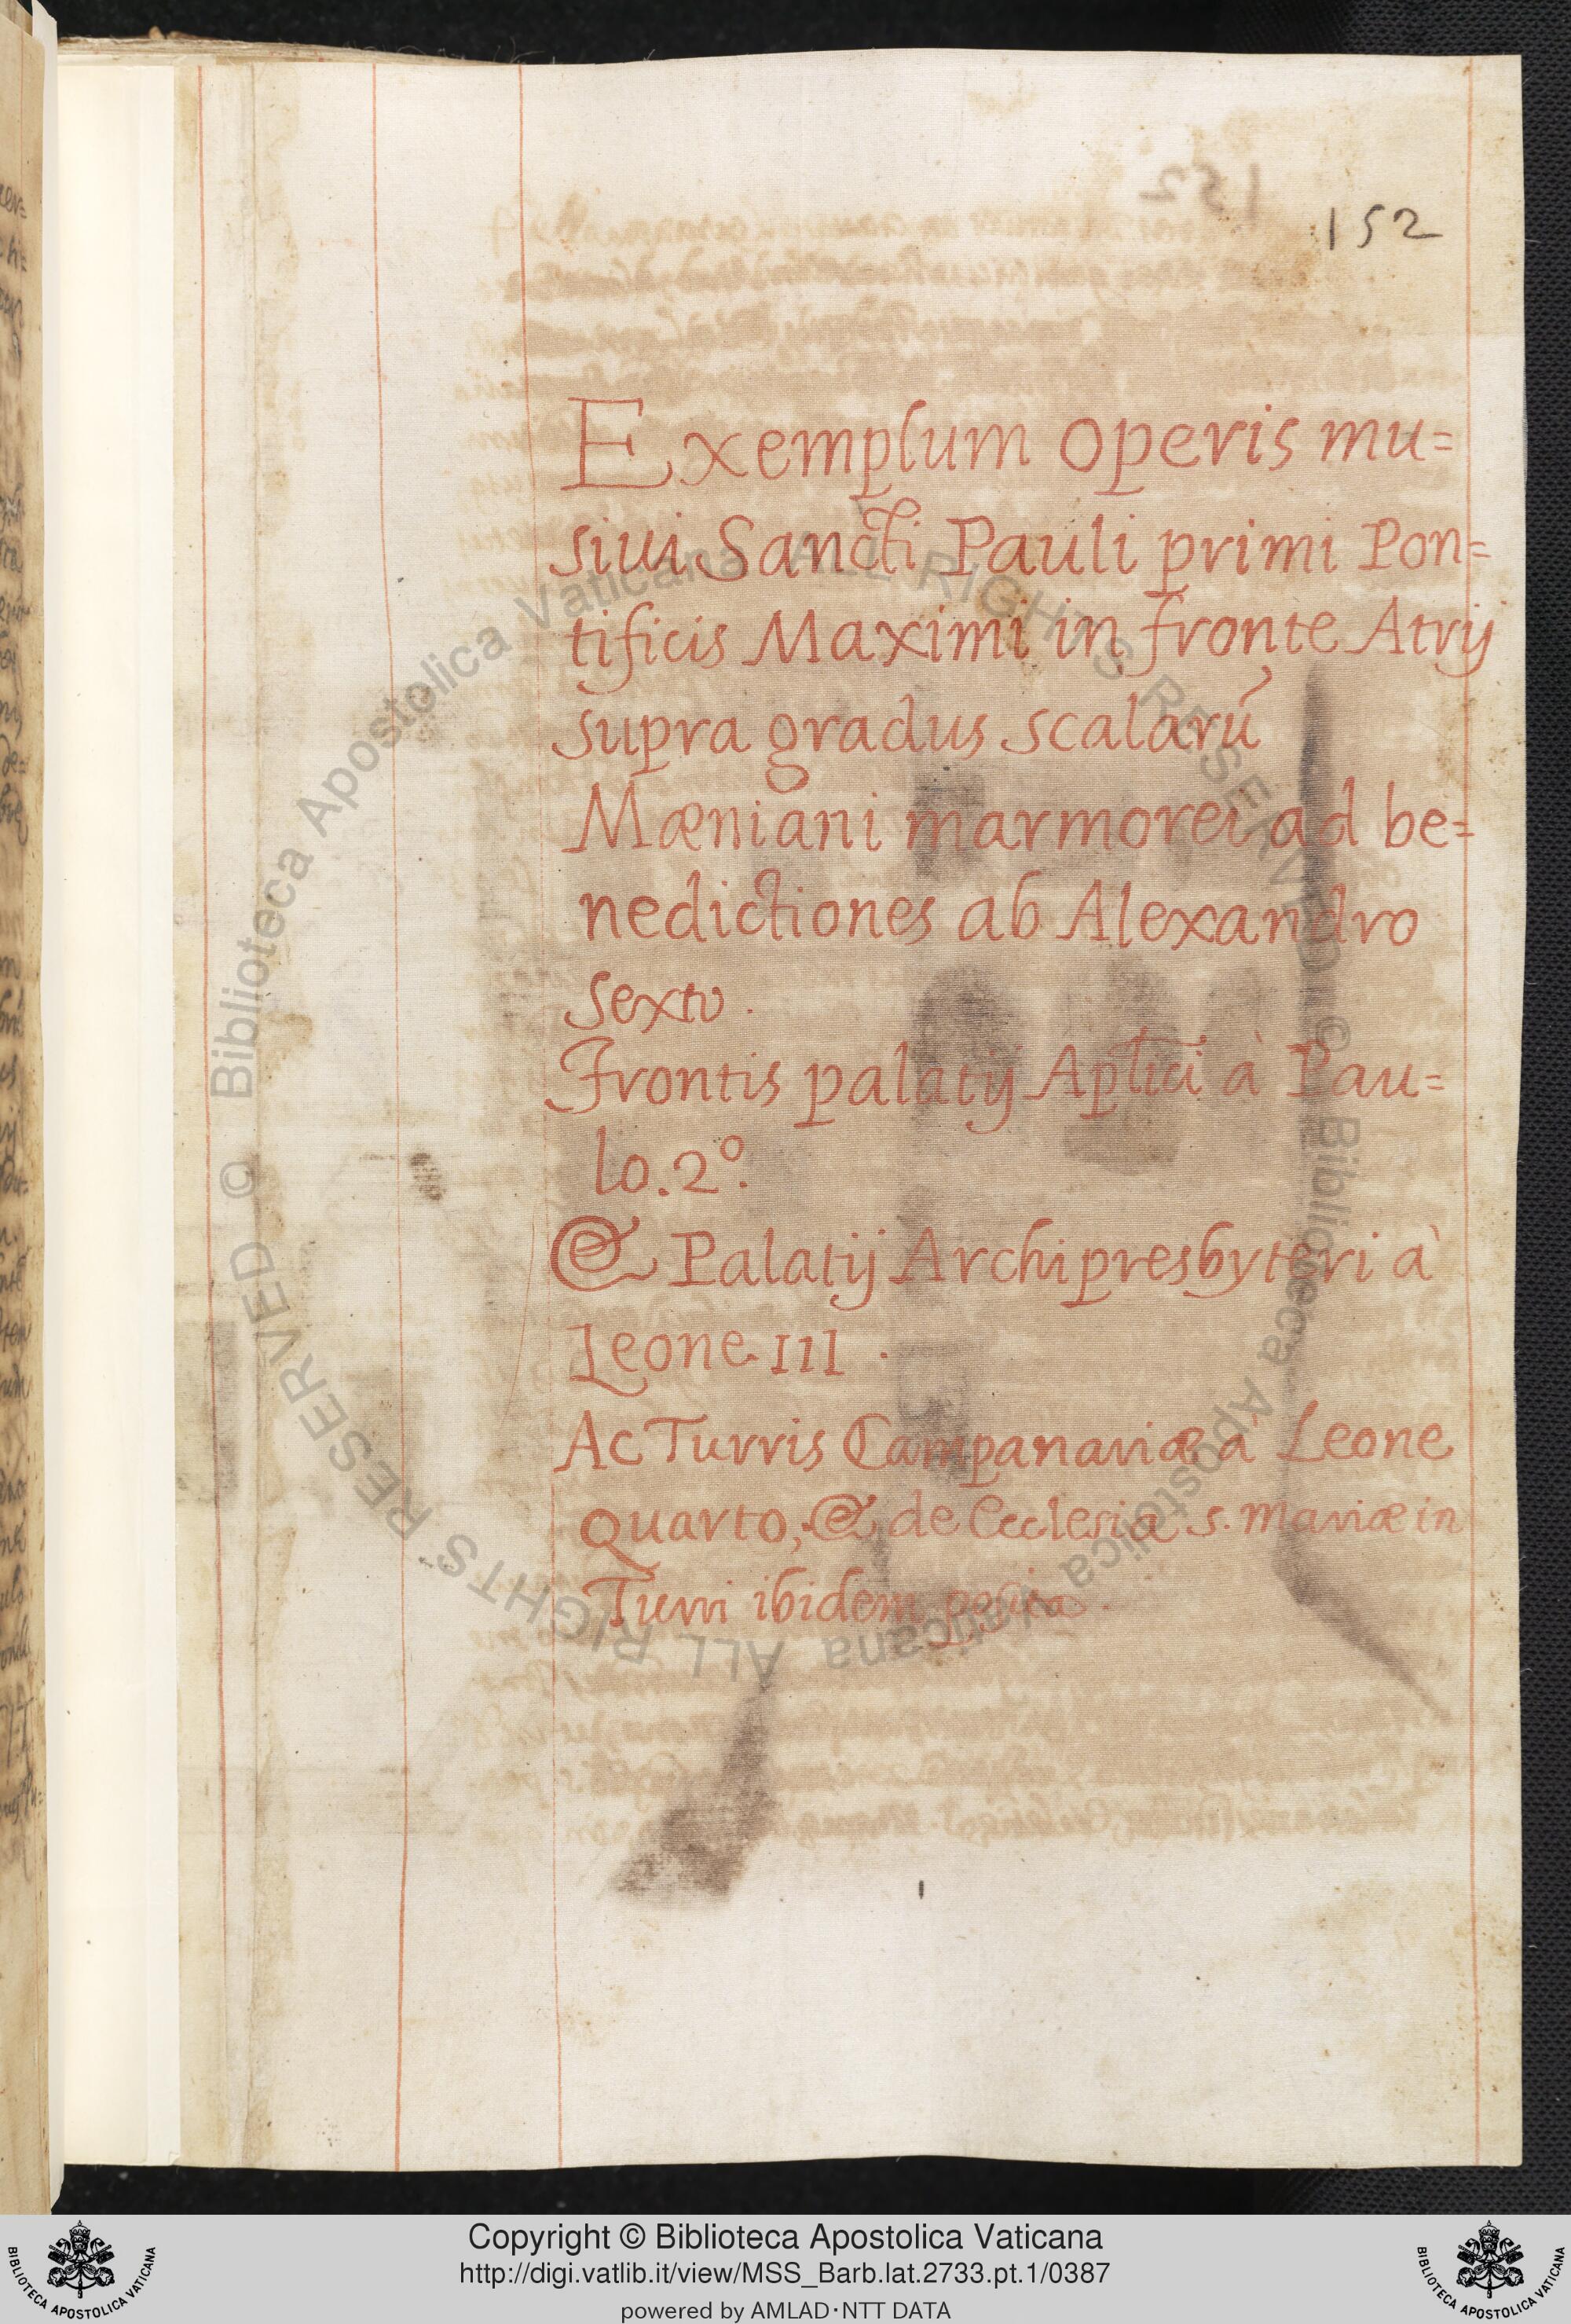 152
Exemplum operis mu=
siui Sancti Pauli primi Pon=
tificis Maximi in fronte Atrij
supra gradus scalarū
Mæniani marmorei ad be=
nedictiones ab Alexandro
Sexto.
Frontis palatij Aplici à Pau=
lo. 2º.
& Palatij Archipresbyteri à
Leone III.
Ac Turris Campanariæ a Leone
Quarto, & de Ecclesia s. Mariæ in
Turri ibidem posita.
Copyright © Biblioteca Apostolica Vaticana
http://digi.vatlib.it/view/MSS_Barb.lat.2733.pt.1/0387
powered by AMLAD·NTT DATA
BIBLIOTECA APOSTOLICA VATICANA
BIBLIOTECA APOSTOLICA VATICANA
© Biblioteca Apostolica Vaticana ALL RIGHTS RESERVED © Biblioteca Apostolica Vaticana ALL RIGHTS RESERVED